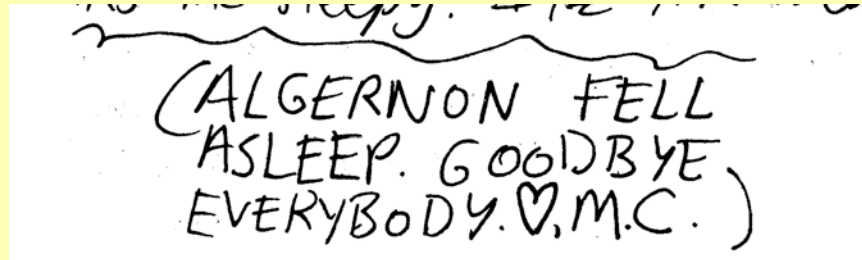 sleepy.
(ALGERNON FELL
ASLEEP. GOODBYE
EVERYBODY. ♡, M.C.)